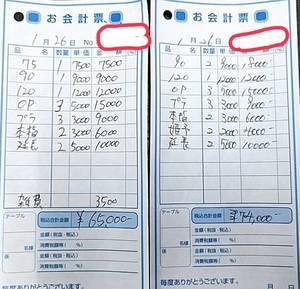 お会計票
1月26日 No.
数量 単価 金額
75 1 7500 7500
90 1 9000 9000
120 1 12000 12000
OP 3 5000 15000
プラ 3 3000 9000
本指 2 3000 6000
延長 2 5000 10000
雑費 3500
テーブル
税込合計金額 ¥65,000-
金額(税抜・税込)
消費税額等
%
金額(税抜・税込)
消費税額等
係
名様
毎度ありがとうございます。
お会計票
1月26日
数量 単価 金額
90 2 9000 18000
120 1 12000 12000
OP 3 5000 15000
プラ 3 3000 9000
本指 2 3000 6000
姫予 2 2000 4000
延長 2 5000 10000
テーブル
税込合計金額 ¥74,000-
金額(税抜・税込)
消費税額等
%
金額(税抜・税込)
消費税額等
係
名様
毎度ありがとうございます。
月 日